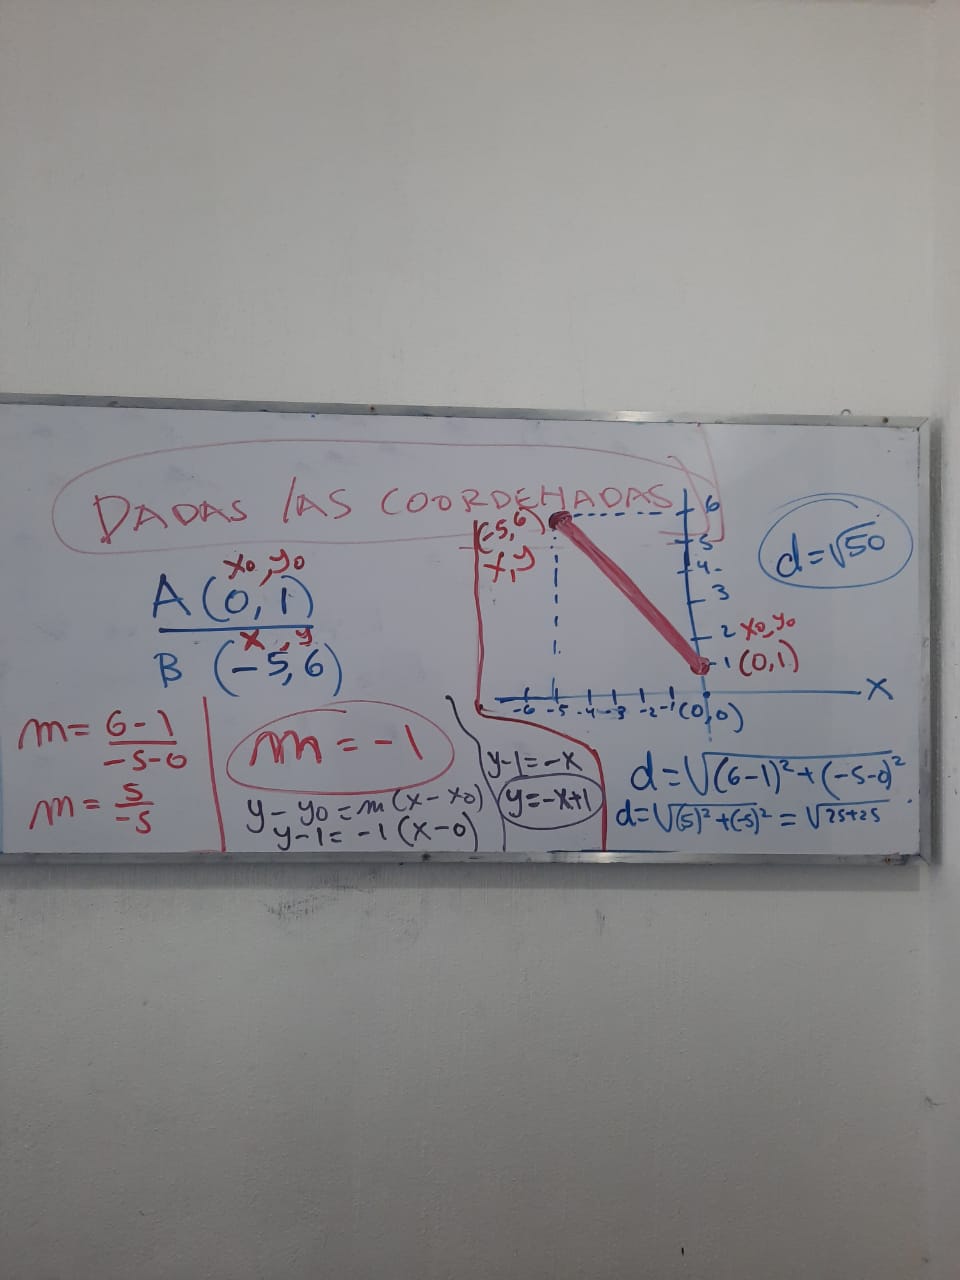 DADAS LAS COORDENADAS
x0, y0
A (0, 1)
x, y
B (-5, 6)
m= 6-1 / -5-0
m= 5 / -5
m = -1
y-y0=m(x-x0)
y-1=-1(x-0)
y-1=-x
y=-x+1
(-5,6)
x,y
6
5
4
3
2
1
x0,y0
(0,1)
-6 -5 -4 -3 -2 -1 (0,0)
X
d=√50
d=√(6-1)²+(-5-0)²
d=√(5)²+(-5)² = √25+25